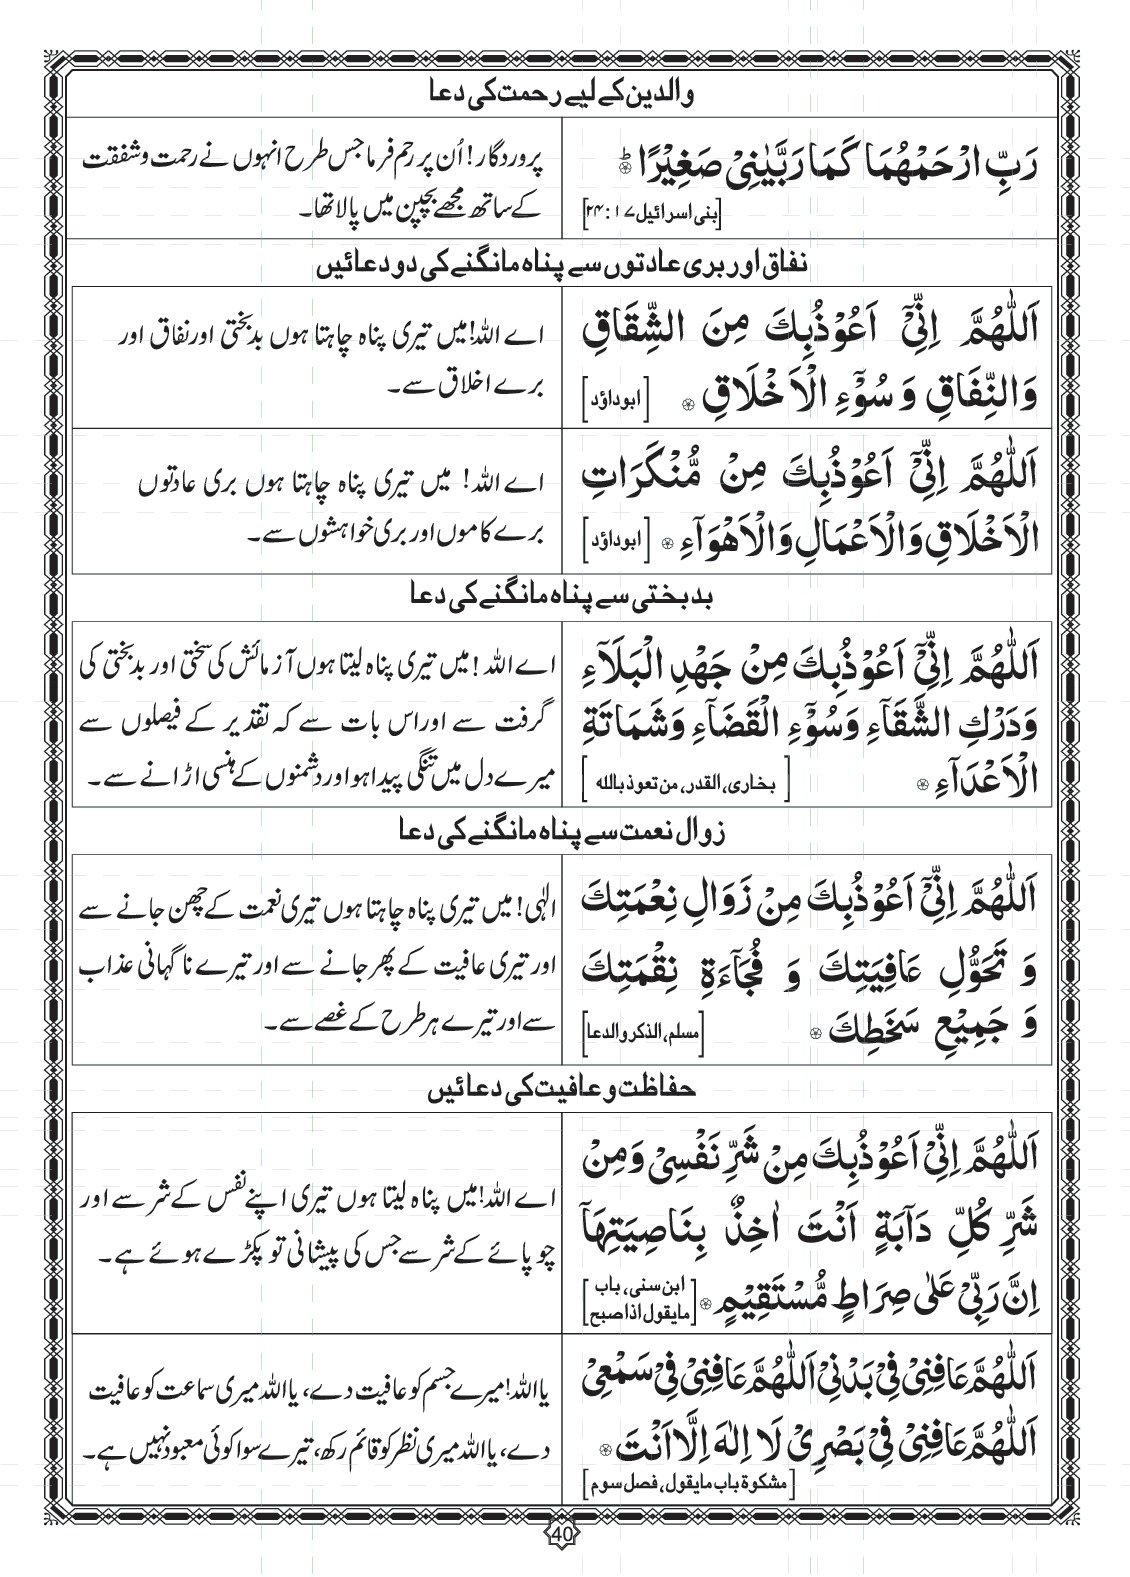 والدین کے لیے رحمت کی دعا
رَبِّ ارْحَمْهُمَا كَمَا رَبَّيٰنِيْ صَغِيْرًا ؕ
[بنی اسرائیل ۱۷:۲۴]
پروردگار! اُن پر رحم فرما جس طرح انہوں نے رحمت و شفقت
کے ساتھ مجھے بچپن میں پالا تھا۔
نفاق اور بری عادتوں سے پناہ مانگنے کی دو دعائیں
اَللّٰهُمَّ اِنِّيْٓ اَعُوْذُبِكَ مِنَ الشِّقَاقِ
وَالنِّفَاقِ وَ سُوْٓءِ الْاَخْلَاقِ [ابوداؤد]
اے اللہ! میں تیری پناہ چاہتا ہوں بدبختی اور نفاق اور
برے اخلاق سے۔
اَللّٰهُمَّ اِنِّيْٓ اَعُوْذُبِكَ مِنْ مُّنْكَرَاتِ
الْاَخْلَاقِ وَالْاَعْمَالِ وَالْاَهْوَآءِ [ابوداؤد]
اے اللہ! میں تیری پناہ چاہتا ہوں بری عادتوں
برے کاموں اور بری خواہشوں سے۔
بدبختی سے پناہ مانگنے کی دعا
اَللّٰهُمَّ اِنِّيْٓ اَعُوْذُبِكَ مِنْ جَهْدِ الْبَلَآءِ
وَدَرْكِ الشَّقَآءِ وَسُوْٓءِ الْقَضَآءِ وَشَمَاتَةِ
الْاَعْدَآءِ [بخاری، القدر، من تعوذ باللہ]
اے اللہ! میں تیری پناہ لیتا ہوں آزمائش کی سختی اور بدبختی کی
گرفت سے اور اس بات سے کہ تقدیر کے فیصلوں سے
میرے دل میں تنگی پیدا ہو اور دشمنوں کے ہنسی اڑانے سے۔
زوال نعمت سے پناہ مانگنے کی دعا
اَللّٰهُمَّ اِنِّيْٓ اَعُوْذُبِكَ مِنْ زَوَالِ نِعْمَتِكَ
وَ تَحَوُّلِ عَافِيَتِكَ وَ فُجَآءَةِ نِقْمَتِكَ
وَ جَمِيْعِ سَخَطِكَ [مسلم، الذکر والدعا]
الٰہی! میں تیری پناہ چاہتا ہوں تیری نعمت کے چھن جانے سے
اور تیری عافیت کے پھر جانے سے اور تیرے ناگہانی عذاب
سے اور تیرے ہر طرح کے غصے سے۔
حفاظت و عافیت کی دعائیں
اَللّٰهُمَّ اِنِّيْٓ اَعُوْذُبِكَ مِنْ شَرِّ نَفْسِيْ وَمِنْ
شَرِّ كُلِّ دَآبَةٍ اَنْتَ اٰخِذٌ بِنَاصِيَتِهَآ
اِنَّ رَبِّيْ عَلٰى صِرَاطٍ مُّسْتَقِيْمٍ [ابن سنی، باب
مایقول اذا صبح]
اے اللہ! میں پناہ لیتا ہوں تیری اپنے نفس کے شر سے اور
چوپائے کے شر سے جس کی پیشانی تو پکڑے ہوئے ہے۔
اَللّٰهُمَّ عَافِنِيْ فِيْ بَدْنِيْ اَللّٰهُمَّ عَافِنِيْ فِيْ سَمْعِيْ
اَللّٰهُمَّ عَافِنِيْ فِيْ بَصَرِيْ لَا اِلٰهَ اِلَّا اَنْتَ
[مشکوۃ باب مایقول، فصل سوم]
یا اللہ! میرے جسم کو عافیت دے، یا اللہ میری سماعت کو عافیت
دے، یا اللہ میری نظر کو قائم رکھ، تیرے سوا کوئی معبود نہیں ہے۔
40